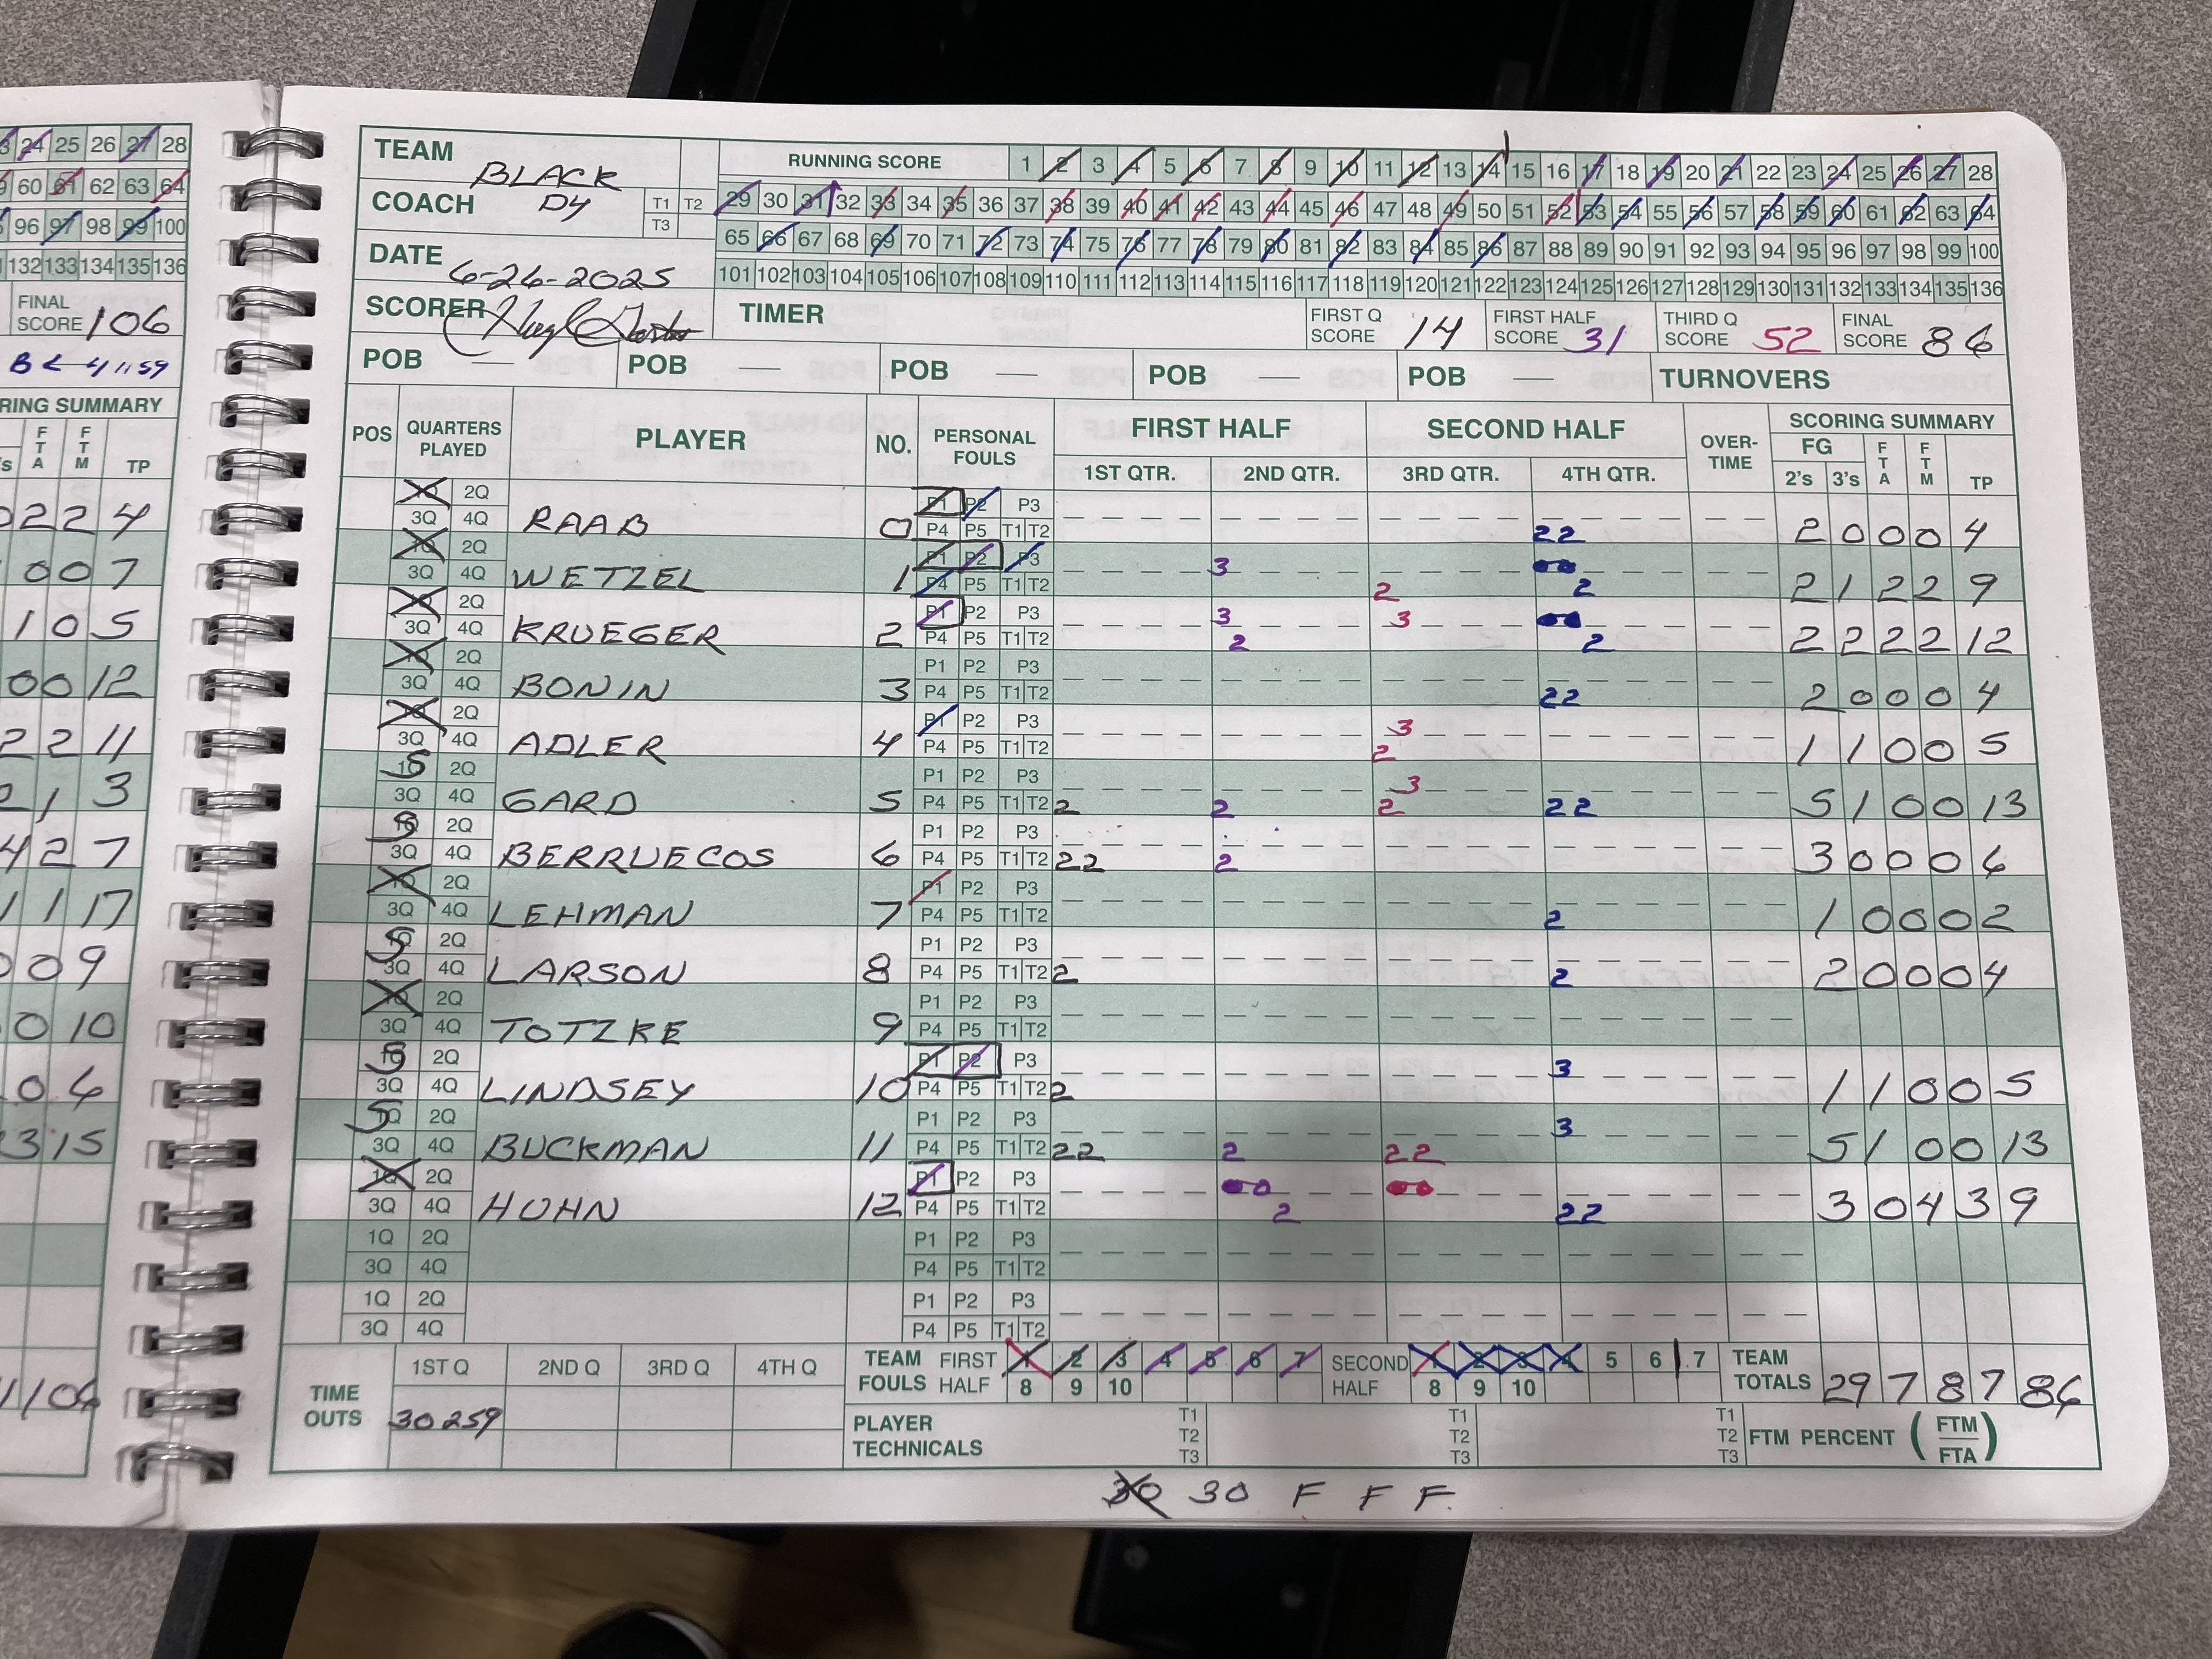 24 25 26 27 28
60 61 62 63 64
96 97 98 99 100
132 133 134 135 136
FINAL SCORE 106
B < 4 11:59
RING SUMMARY
's FTA FTM TP
0 2 2 4
0 0 7
1 0 5
0 0 12
2 2 11
2 1 3
4 2 7
1 1 17
0 0 9
0 10
0 6
3 15
1 106
TEAM BLACK
RUNNING SCORE 1 2 3 4 5 6 7 8 9 10 11 12 13 14 15 16 17 18 19 20 21 22 23 24 25 26 27 28
COACH DY T1 T2 T3
29 30 31 32 33 34 35 36 37 38 39 40 41 42 43 44 45 46 47 48 49 50 51 52 53 54 55 56 57 58 59 60 61 62 63 64
65 66 67 68 69 70 71 72 73 74 75 76 77 78 79 80 81 82 83 84 85 86 87 88 89 90 91 92 93 94 95 96 97 98 99 100
DATE 6-26-2025
101 102 103 104 105 106 107 108 109 110 111 112 113 114 115 116 117 118 119 120 121 122 123 124 125 126 127 128 129 130 131 132 133 134 135 136
SCORER TIMER FIRST Q SCORE 14 FIRST HALF SCORE 31 THIRD Q SCORE 52 FINAL SCORE 86
POB — POB — POB — POB — POB — TURNOVERS
POS QUARTERS PLAYED PLAYER NO. PERSONAL FOULS FIRST HALF SECOND HALF OVER-TIME SCORING SUMMARY
1ST QTR. 2ND QTR. 3RD QTR. 4TH QTR. FG 2's 3's FTA FTM TP
1Q 2Q P1 P2 P3
3Q 4Q RAAB 0 P4 P5 T1 T2 22 2 0 0 0 4
1Q 2Q P1 P2 P3 3
3Q 4Q WETZEL 1 P4 P5 T1 T2 2 2 2 1 2 2 9
1Q 2Q P1 P2 P3 3 3
3Q 4Q KRUEGER 2 P4 P5 T1 T2 2 2 2 2 2 2 12
1Q 2Q P1 P2 P3
3Q 4Q BONIN 3 P4 P5 T1 T2 22 2 0 0 0 4
1Q 2Q P1 P2 P3 3
3Q 4Q ADLER 4 P4 P5 T1 T2 2 1 1 0 0 5
S 2Q P1 P2 P3 3
3Q 4Q GARD 5 P4 P5 T1 T2 2 2 2 22 5 1 0 0 13
S 2Q P1 P2 P3
3Q 4Q BERRUECOS 6 P4 P5 T1 T2 22 2 3 0 0 0 6
1Q 2Q P1 P2 P3
3Q 4Q LEHMAN 7 P4 P5 T1 T2 2 1 0 0 0 2
S 2Q P1 P2 P3
3Q 4Q LARSON 8 P4 P5 T1 T2 2 2 2 0 0 0 4
1Q 2Q P1 P2 P3
3Q 4Q TOTZKE 9 P4 P5 T1 T2
S 2Q P1 P2 P3 3
3Q 4Q LINDSEY 10 P4 P5 T1 T2 2 1 1 0 0 5
S 2Q P1 P2 P3 3
3Q 4Q BUCKMAN 11 P4 P5 T1 T2 22 2 22 5 1 0 0 13
1Q 2Q P1 P2 P3
3Q 4Q HOHN 12 P4 P5 T1 T2 2 22 3 0 4 3 9
1Q 2Q P1 P2 P3
3Q 4Q P4 P5 T1 T2
1Q 2Q P1 P2 P3
3Q 4Q P4 P5 T1 T2
TIME OUTS 1ST Q 2ND Q 3RD Q 4TH Q
30 259
TEAM FOULS FIRST HALF 1 2 3 4 5 6 7 8 9 10 SECOND HALF 1 2 3 4 5 6 7 8 9 10 TEAM TOTALS 29 7 8 7 86
PLAYER TECHNICALS T1 T2 T3 T1 T2 T3 T1 T2 T3 FTM PERCENT (FTM/FTA)
30 30 F F F